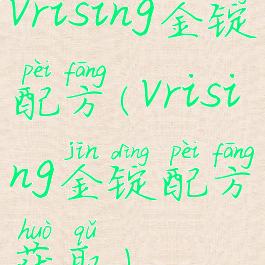 vrising金锭
pèi fāng
配方(vrisi
jīn dìng pèi fāng
ng金锭配方
huò qǔ
获取)